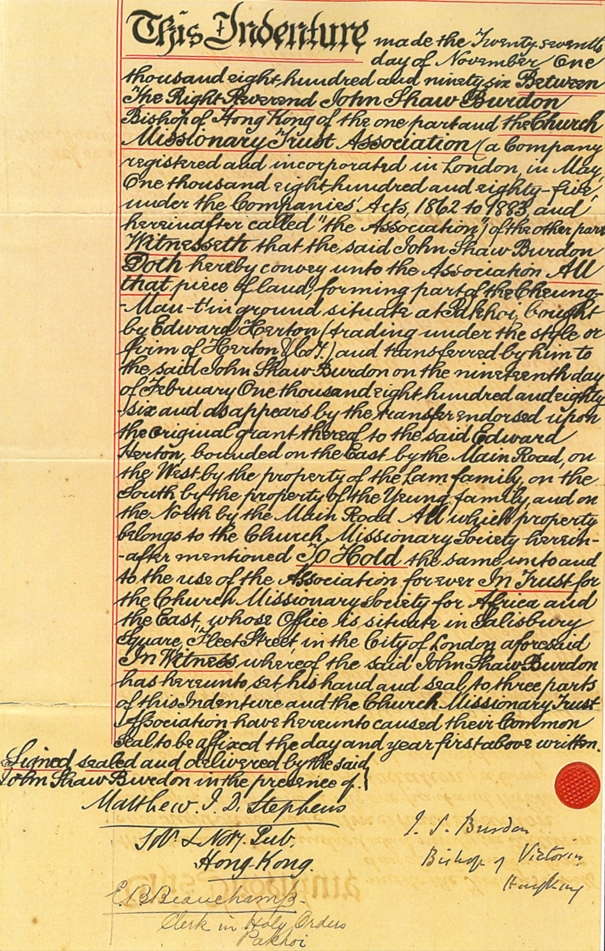 This Indenture made the Twenty seventh
day of November One
thousand eight hundred and ninety six Between
The Right Reverend John Shaw Burdon
Bishop of Hong Kong of the one part and the Church
Missionary Trust Association (a Company
registered and incorporated in London, in May,
One thousand eight hundred and eighty-five
under the Companies' Acts, 1862 to 1883, and
hereinafter called "the Association") of the other part
Witnesseth that the said John Shaw Burdon
Doth hereby convey unto the Association All
that piece of land, forming part of the Cheung-
-Mau-t'in ground situate at Pakhoi, bought
by Edward Herton (trading under the style or
firm of Herton & Co.) and transferred by him to
the said John Shaw Burdon on the nineteenth day
of February One thousand eight hundred and eighty
-six and as appears by the transfer endorsed upon
the original grant thereof to the said Edward
Herton, bounded on the East by the Main Road, on
the West by the property of the Lam family, on the
South by the property of the Yeung family, and on
the North by the Main Road All which property
belongs to the Church Missionary Society herein-
-after mentioned To Hold the same unto and
to the use of the Association forever In Trust for
the Church Missionary Society for Africa and
the East, whose Office is situate in Salisbury
Square, Fleet Street in the City of London aforesaid
In Witness whereof the said John Shaw Burdon
has hereunto set his hand and seal to three parts
of this Indenture and the Church Missionary Trust
Association have hereunto caused their Common
Seal to be affixed the day and year first above written.
Signed sealed and delivered by the said
John Shaw Burdon in the presence of
Matthew J. D. Stephens
Sol. & Noty. Pub.
Hong Kong.
J. S. Burdon
Bishop of Victoria
Hongkong
E. B. Beauchamp.
Clerk in Holy Orders
Pakhoi